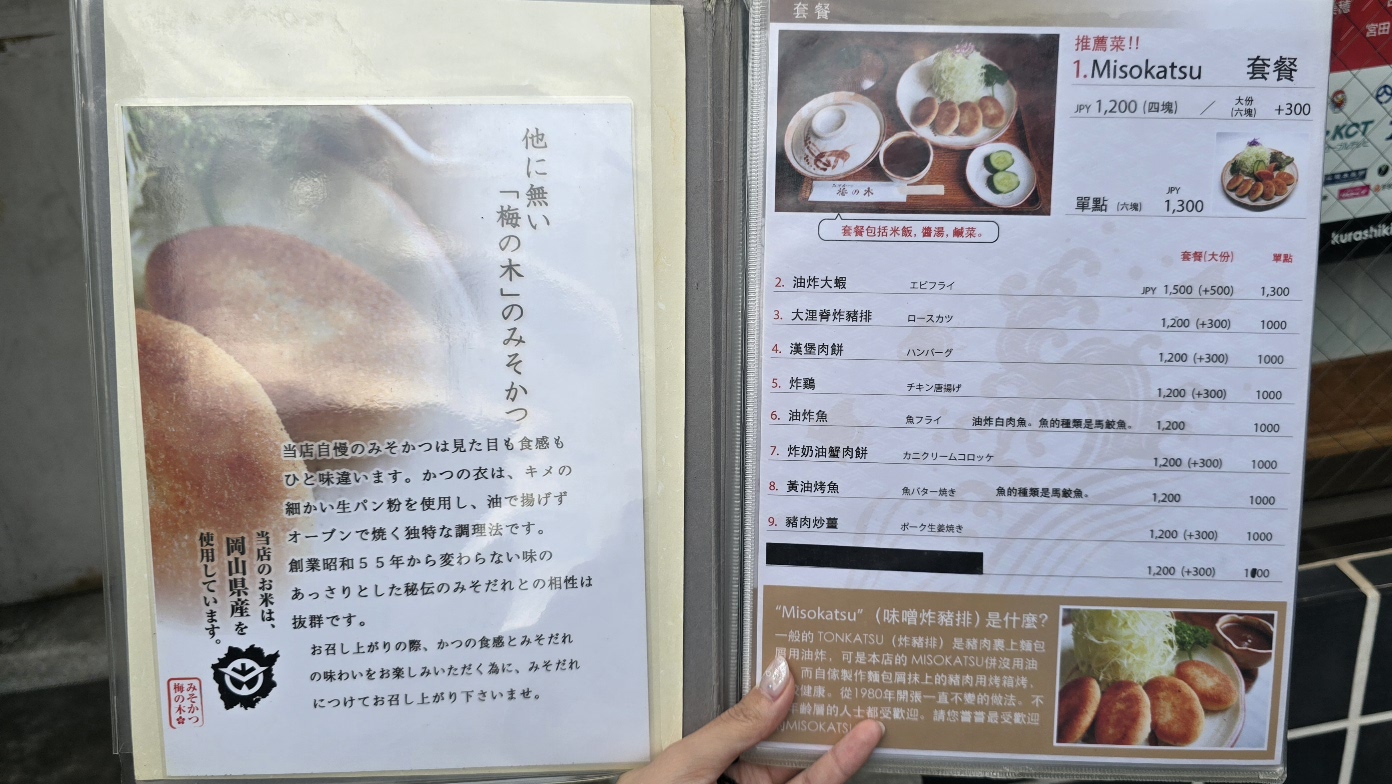 他に無い
「梅の木」のみそかつ
当店自慢のみそかつは見た目も食感も
ひと味違います。かつの衣は、キメの
細かい生パン粉を使用し、油で揚げず
オーブンで焼く独特な調理法です。
創業昭和５５年から変わらない味の
あっさりとした秘伝のみそだれとの相性は
抜群です。
お召し上がりの際、かつの食感とみそだれ
の味わいをお楽しみいただく為に、みそだれ
につけてお召し上がり下さいませ。
当店のお米は、
岡山県産を
使用しています。
みそかつ
梅の木
套餐
推薦菜!!
1.Misokatsu 套餐
JPY 1,200 (四塊) ／ 大份 (六塊) +300
單點 (六塊) JPY 1,300
梅の木
套餐包括米飯, 醬湯, 鹹菜。
套餐(大份) 單點
2. 油炸大蝦 エビフライ JPY 1,500 (+500) 1,300
3. 大浬脊炸豬排 ロースカツ 1,200 (+300) 1000
4. 漢堡肉餅 ハンバーグ 1,200 (+300) 1000
5. 炸鷄 チキン唐揚げ 1,200 (+300) 1000
6. 油炸魚 魚フライ 油炸白肉魚。魚的種類是馬鮫魚。 1,200 1000
7. 炸奶油蟹肉餅 カニクリームコロッケ 1,200 (+300) 1000
8. 黃油烤魚 魚バター焼き 魚的種類是馬鮫魚。 1,200 1000
9. 豬肉炒薑 ポーク生姜焼き 1,200 (+300) 1000
1,200 (+300) 1000
"Misokatsu" (味噌炸豬排) 是什麼?
一般的 TONKATSU (炸豬排) 是豬肉裹上麵包
屑用油炸, 可是本店的 MISOKATSU併沒用油
而自傢製作麵包屑抹上的豬肉用烤箱烤、
健康。從1980年開張一直不變的做法。不
年齡層的人士都受歡迎。請您嘗嘗最受歡迎
MISOKATSU
宮田
KCT
kurashiki